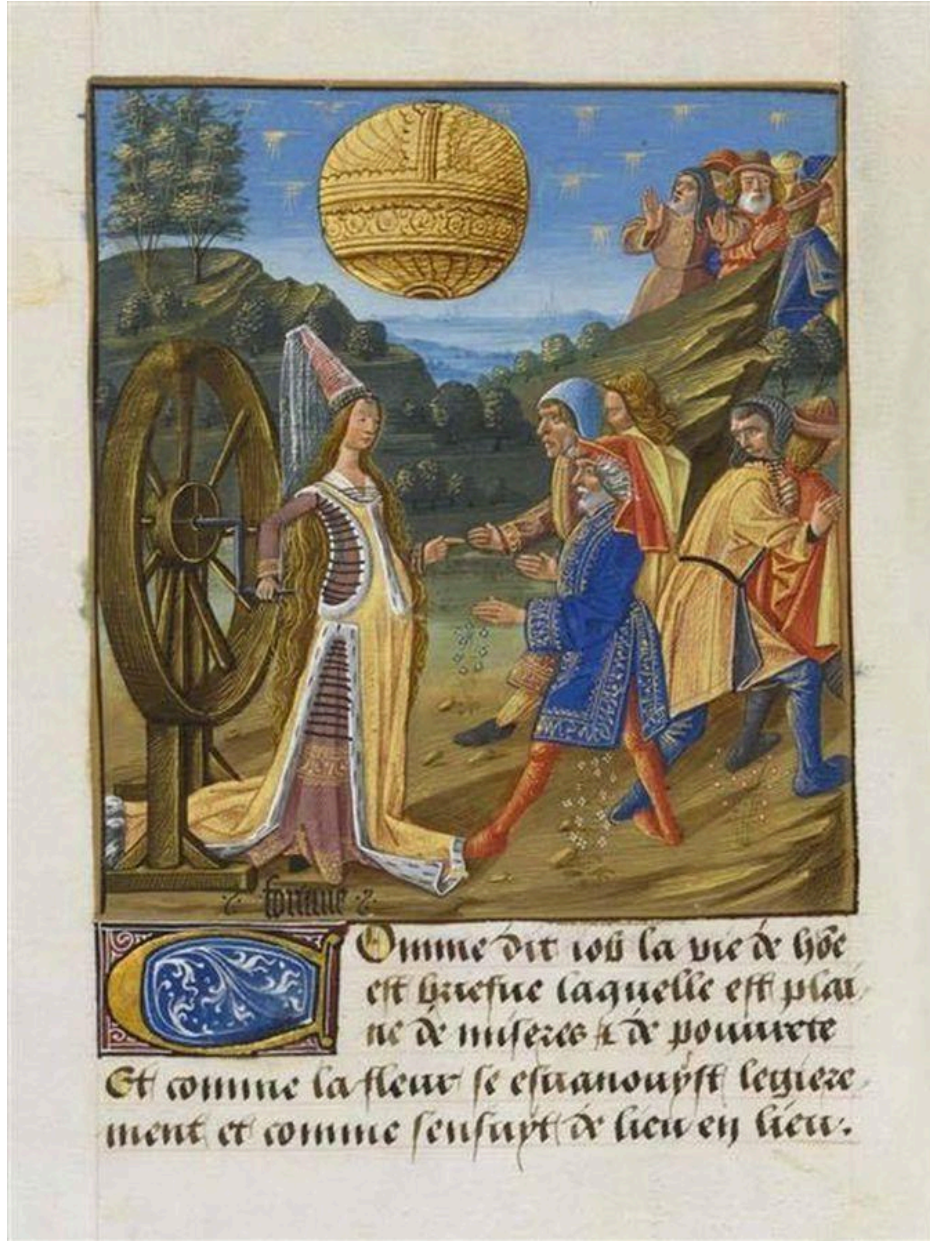 fortune
Comme dit iob la vie de hõe
est briefue laquelle est plai-
ne de miseres & de pouurete
Et comme la fleur se esuanouyst legiere-
ment et comme sensuyt de lieu en lieu.